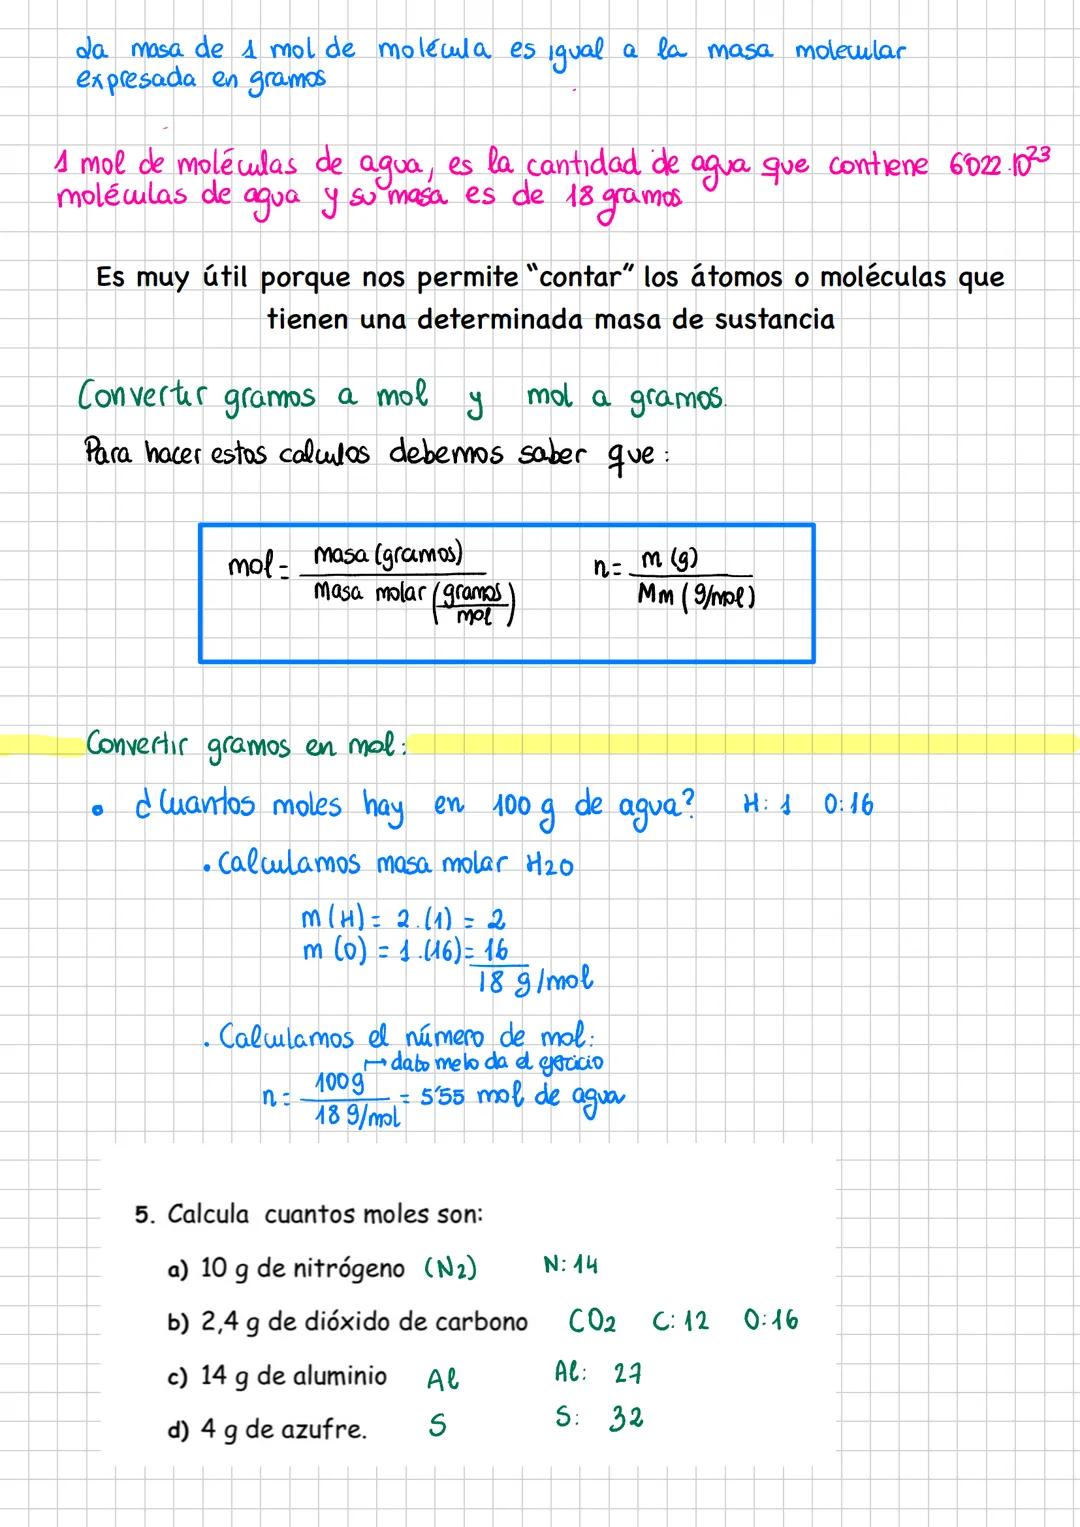 La masa de 1 mol de molécula es igual a la masa molecular
expresada en gramos
1 mol de moléculas de agua, es la cantidad de agua que contiene 6'022.10²³
moléculas de agua y su masa es de 18 gramos
Es muy útil porque nos permite "contar" los átomos o moléculas que
tienen una determinada masa de sustancia
Convertir gramos a mol y mol a gramos.
Para hacer estos calculos debemos saber que:
mol = masa (gramos) / Masa molar (gramos/mol)    n = m (g) / Mm (g/mol)
Convertir gramos en mol:
• ¿Cuantos moles hay en 100 g de agua? H: 1 O: 16
. Calculamos masa molar H2O
m (H) = 2.(1) = 2
m (O) = 1.(16) = 16
18 g/mol
. Calculamos el número de mol:
↦ dato me lo da el ejercicio
n = 100g / 18 g/mol = 5'55 mol de agua
5. Calcula cuantos moles son:
a) 10 g de nitrógeno (N2) N: 14
b) 2,4 g de dióxido de carbono CO2 C: 12 O: 16
c) 14 g de aluminio Al Al: 27
d) 4 g de azufre. S S: 32